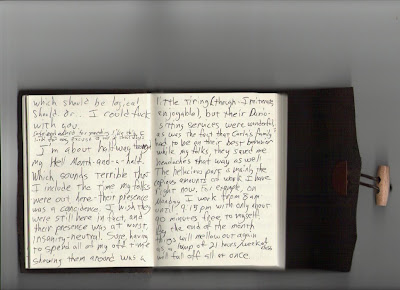 which should be logical
Should do.. I could fuck
with you.
I'm about halfway through
my Hell Month-and-a-half.
Which sounds terrible that
I include the time my folks
were out here - their presence
was a coincidence. I wish they
were still here in fact, and
their presence was at worst,
insanity-neutral. Sure, having
to spend all of my off time
showing them around was a
little tiring (though I
enjoyable), but their
sitting services were wonderful
as was the fact that Carla's family
had to be on their best behavior
while my folks, they saved me
headaches that way as well
The hellacious part is mainly the
amount of work I have
right now, for example, on
Monday, I work from 8am
until 9:15 pm with only about
90 minutes free to myself.
By the end of the month
things will mellow out again
as a boup of 21 hours/week of
will fall off all at once.